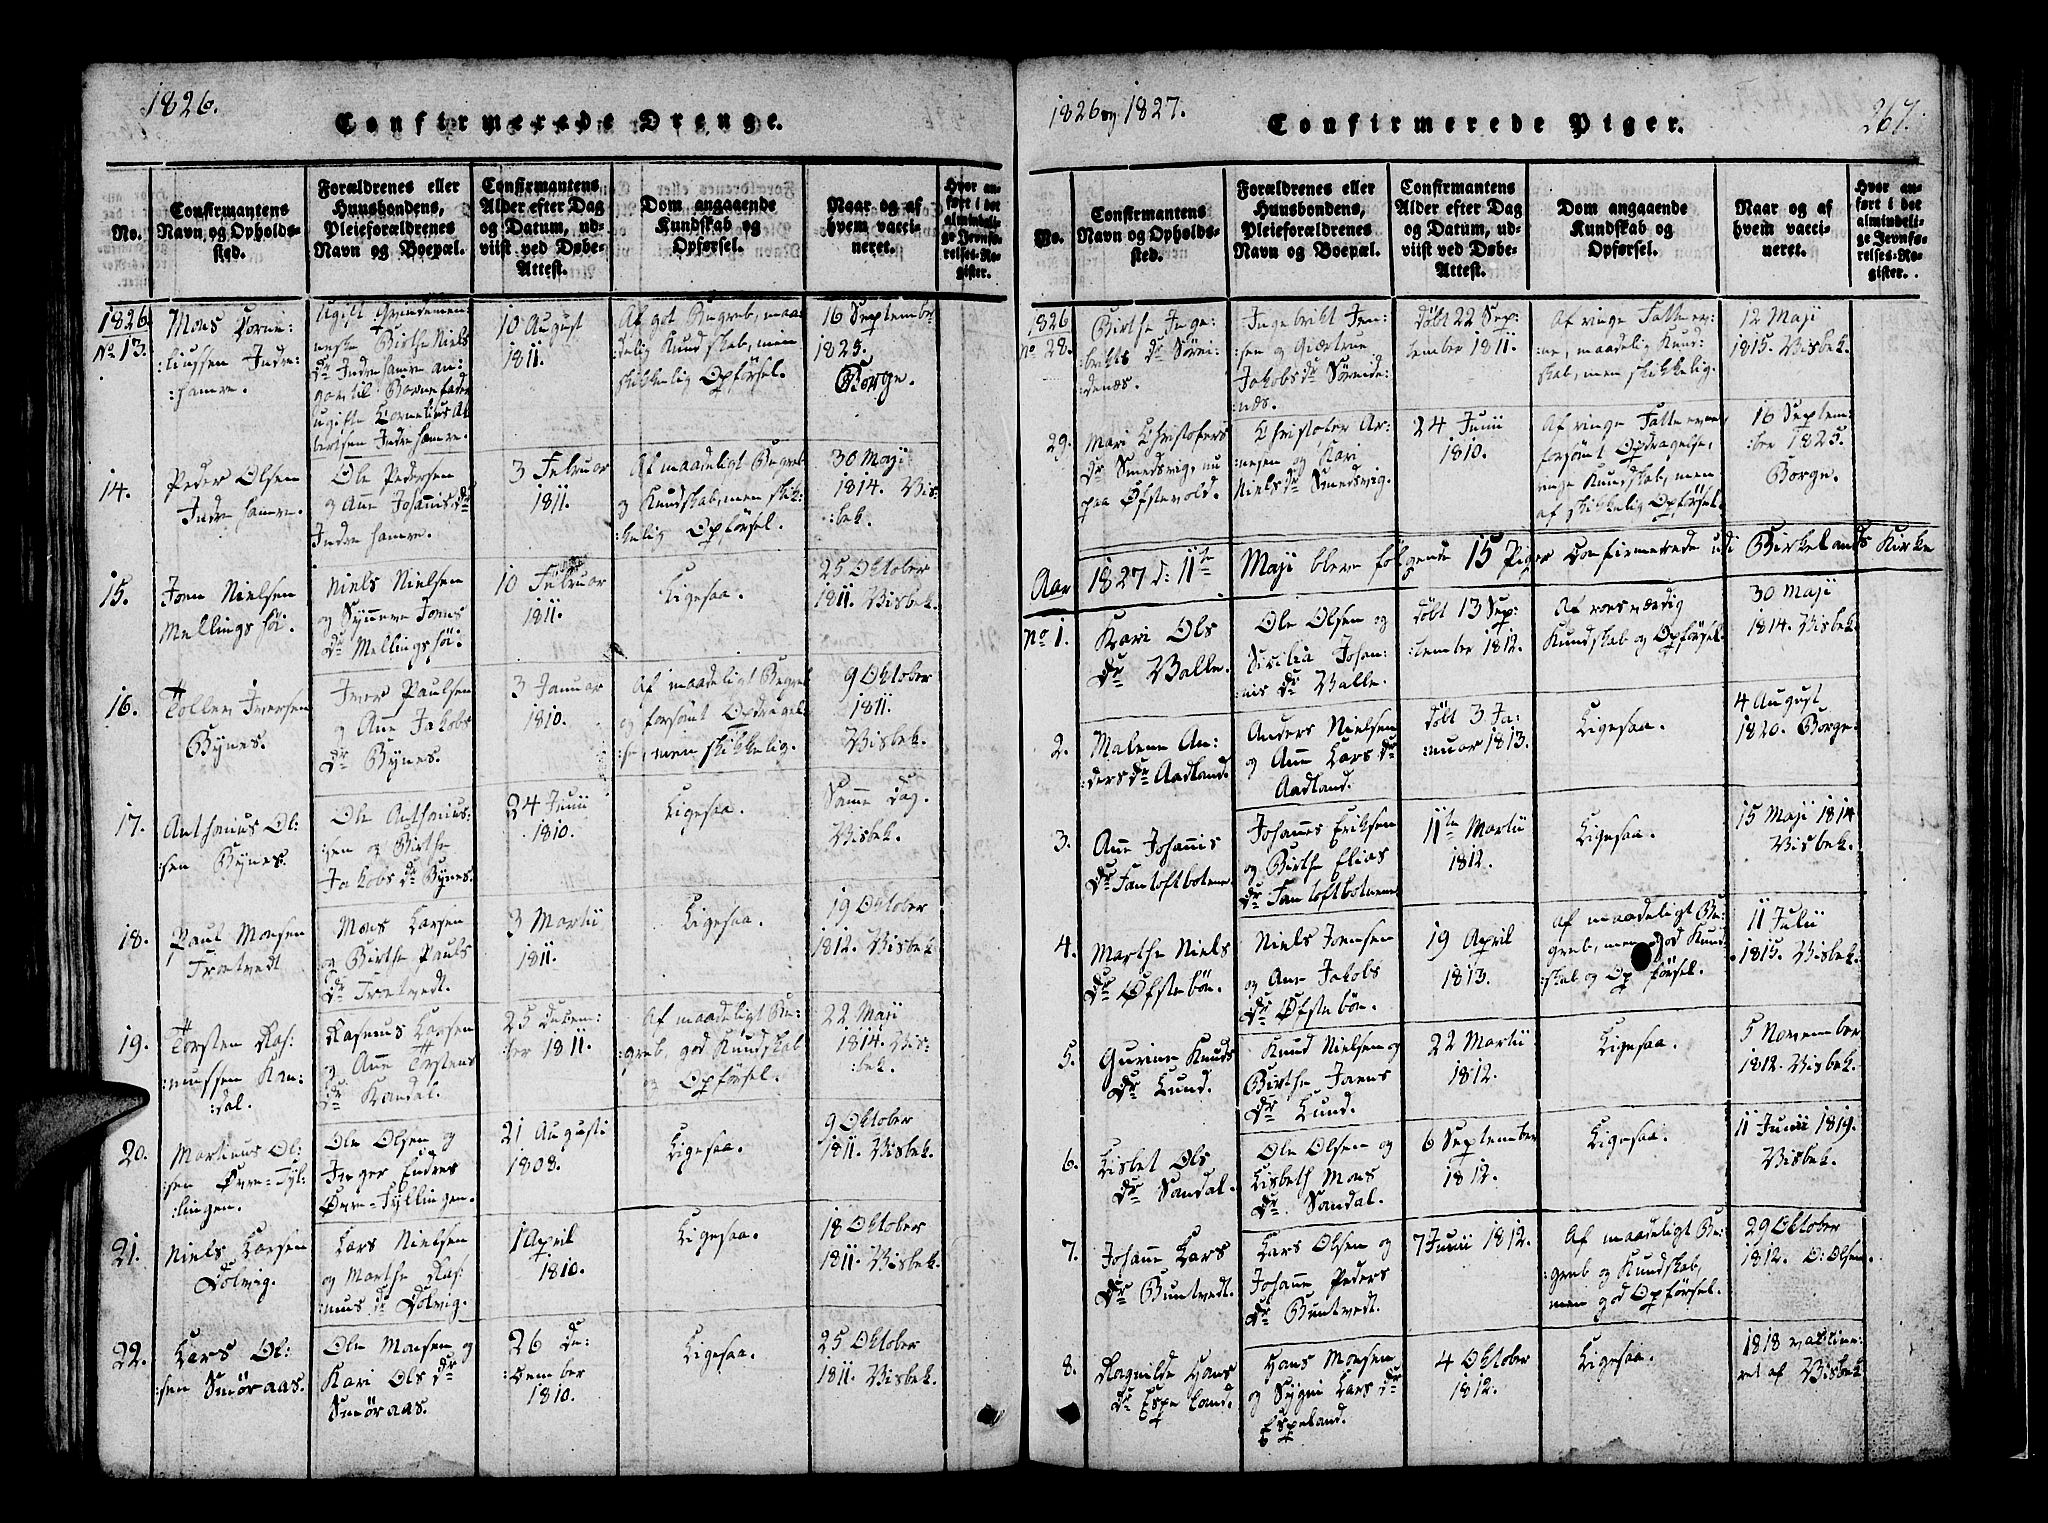 1826.
Confirmerede Drenge.
No.
Confirmantens
Navn og Opholds-
sted.
Forældrenes eller
Huusbondens,
Pleieforældrenes
Navn og Boepæl.
Confirmantens
Alder efter Dag
og Datum, ud-
viist ved Døbe-
Attest.
Dom angaaende
Kundskab og
Opførsel.
Naar og af
hvem vacci-
neret.
Hvor an-
ført i det
almindeli-
ge Jevnfø-
relses-Re-
gister.
1826
No 13.
Mons Corne:
:liussen Indre:
:hamre.
Ugift Qvindemen:
neske Birthe Niels
dr Indrehamre an:
gav til Barnefader
ugifte Cornelius Al
bertsen Indrehamre.
10 August
1811.
Af got Begreb, maa:
delig Kundskab, men
skikkelig Opførsel.
16 September
1825.
Borge.
14.
Peder Olsen
Indrehamre.
Ole Pedersen
og Ane Johannis dr
Indrehamre.
3 Februar
1811.
Af maadeligt Begreb
og Kundskab, men skik:
kelig Opførsel.
30 Maji
1814. Vis:
:bek.
15.
Joen Nielsen
Mellingshøi.
Niels Nielsen
og Synneve Joens
dr Mellingshøi.
10 Februar
1811.
Ligesaa.
25 Oktober
1811. Visbek.
16.
Tollev Iversen
Bynes.
Iver Paulsen
og Ane Jakobs
dr Bynes.
3 Januar
1810.
Af maadeligt Begreb
og forsømt Opdragel:
:se, men skikkelig.
9 Oktober
1811.
Visbek.
17.
Anthonius Ol:
sen Bynes.
Ole Anthonius:
:sen og Birthe
Jakobs dr Bynes.
24 Junii
1810.
Ligesaa.
Samme Dag.
Visbek.
18.
Paul Monsen
Trætvedt
Mons Larsen
og Birthe Pauls
dr Trætvedt.
3 Martii
1811.
Ligesaa.
19 Oktober
1812. Visbek.
19.
Torsten Ras:
:mussen Kan:
:dal.
Rasmus Larsen
og Ane Torstens
dr Kandal.
25 Decem:
:ber 1811.
Af maadeligt Be:
:greb, god Kundskab
og Opførsel.
22 Maji
1814. Vis:
:bek.
20.
Martinus Ol:
:sen Øvre-Tyl:
:lingen.
Ole Olsen og
Inger Endres
Øvre-Tyllingen.
21 Augusti
1808.
Ligesaa.
9 Oktober
1811. Visbek.
21.
Niels Larsen
Dolvig.
Lars Nielsen
og Marthe Ras:
:mus dr Dolvig.
1 April
1810.
Ligesaa.
18 Oktober
1811. Visbek.
22.
Lars Ol:
:sen Smøraas.
Ole Monsen og
Kari Ols dr
Smøraas.
26 De:
:cember
1810.
Ligesaa.
25 Oktober
1811. Visbek.
1826 og 1827.
Confirmerede Piger.
267.
No.
Confirmantens
Navn og Opholds-
sted.
Forældrenes eller
Huusbondens,
Pleieforældrenes
Navn og Boepæl.
Confirmantens
Alder efter Dag
og Datum, ud-
viist ved Døbe-
Attest.
Dom angaaende
Kundskab og
Opførsel.
Naar og af
hvem vacci-
neret.
Hvor an-
ført i det
almindeli-
ge Jevnfø-
relses-Re-
gister.
1826
No 28.
Birthe Inge:
brikts dr Sørei:
:denæs.
Ingebrikt Jen:
sen og Giertrue
Jakobs dr Søreide:
:næs.
døbt 22 Sep:
tember 1811.
Af ringe Fatteev:
:ne, maadelig Kund:
skab, men skikkelig.
12 Maji
1815. Visbek.
29.
Mari Christofers
dr Smedsvig, nu
paa Øfstevold.
Christofer Ar:
nesen og Kari
Niels dr Smedsvig.
24 Junii
1810.
Af ringe Fatteevne
forsømt Opdragelse,
ringe Kundskab, men
af skikkelig Opførsel.
16 Septem:
:ber 1825.
Borge.
Aar 1827 d: 11te Maji bleve følgende 15 Piger Confirmerede udi Birkelands Kirke
No 1.
Kari Ols
dr Valle.
Ole Olsen og
Sicilia Johan:
nis dr Valle.
døbt 13 Sep:
:tember 1812.
Af roesværdig
Kundskab og Opførsel.
30 Maji
1814. Visbek.
2.
Malene An:
:ders dr Aadland.
Anders Nielsen
og Ane Lars dr
Aadland.
døbt 3 Ja:
:nuar 1813.
Ligesaa.
4 August
1820. Borge.
3.
Ane Johannis
dr Fantoftbotnene.
Johannes Eriksen
og Birthe Elias
dr Fantoftbotnene
11te Martii
1812.
Ligesaa.
15 Maji 1814
Visbek.
4.
Marthe Niels
dr Øfstebøn.
Niels Joensen
og Ane Jakobs
dr Øfstebøn.
19 April
1813.
Af maadeligt Be:
greb, men god Kund:
:skab og Opførsel.
11 Julii
1815. Visbek.
5.
Gurine Knuds
dr Lund.
Knud Nielsen og
Birthe Joens
dr Lund.
22 Martii
1812.
Ligesaa.
5 November
1812. Visbek.
6.
Lisbet Ols
dr Sandal.
Ole Olsen og
Lisbeth Mons
dr Sandal.
6 September
1812.
Ligesaa.
11 Junii 1819.
Visbek.
7.
Johane Lars
dr Buntvedt.
Lars Olsen og
Johane Peders
dr Buntvedt.
7 Junii 1812.
Af maadeligt Be:
:greb og Kundskab,
men god Opførsel.
29 Oktober
1812. O: Olsen.
8.
Ragnilde Hans
dr Espeland.
Hans Monsen
og Sygni Lars dr
Espeland.
4 Oktober
1812.
Ligesaa.
1818 vaccine:
ret af Visbek.